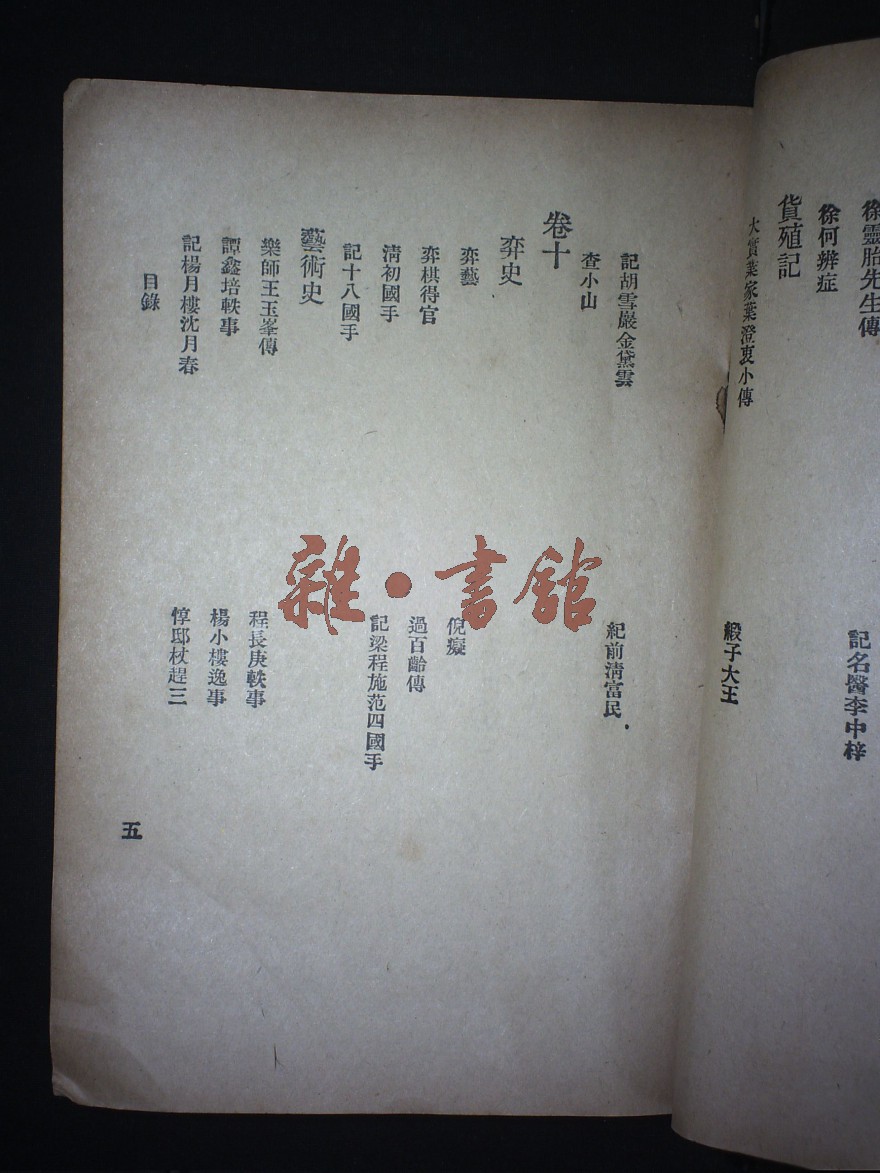 徐靈胎先生傳
記名醫李中梓
徐何辨症
貨殖記
大實業家葉澄衷小傳
緞子大王
記胡雪巖金黛雲
紀前清富民
查小山
卷十
弈史
弈藝
倪癡
弈棋得官
過百齡傳
清初國手
記梁程施范四國手
記十八國手
藝術史
樂師王玉峯傳
程長庚軼事
譚鑫培軼事
楊小樓逸事
記楊月樓沈月春
惇邸杖趕三
目錄
五
雜·書館